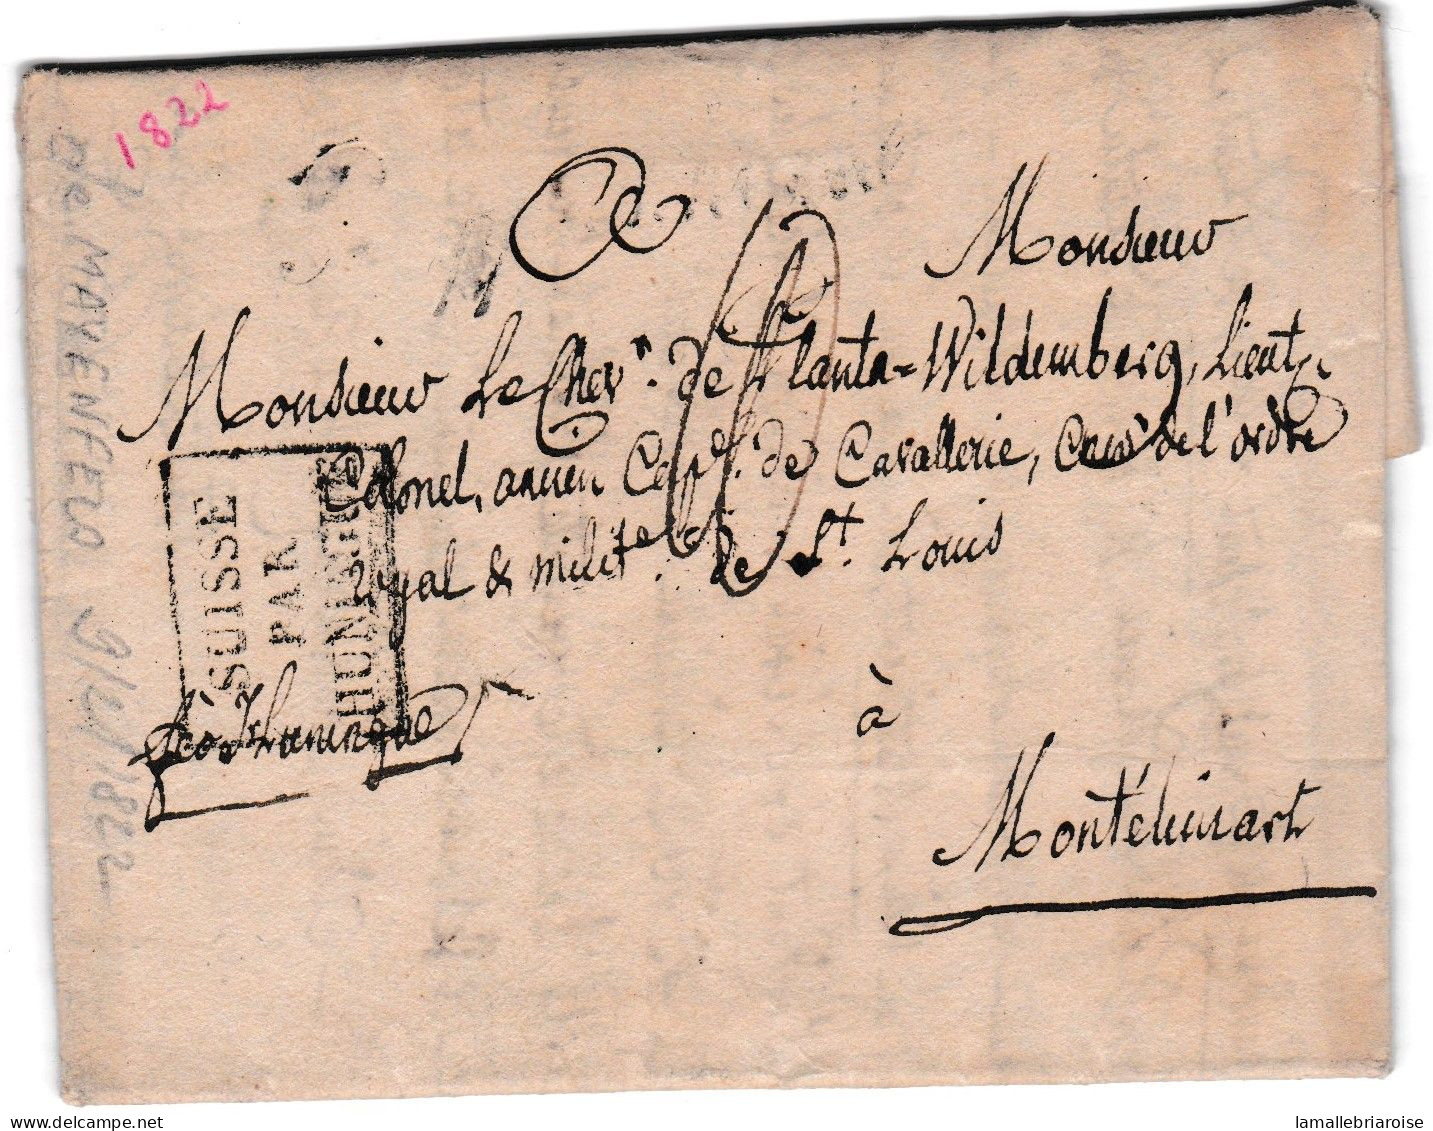 1822
de MAYENFELD 9/et/1822
Monsieur
Monsieur Le Chevr. de Planta=Wildemberg, Lieut,
Colonel, ancien Cape. de Cavallerie, de l'ordre
royal & milite. de St. Louis
SUISSE
PAR
HUNINGUE
Huningue
à
Montélimart
delcampe.net
lamallebriaroise